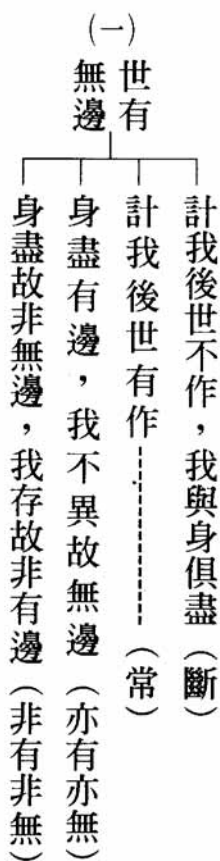 (一)
世有
無邊
計我後世不作，我與身俱盡（斷）
計我後世有作（常）
身盡有邊，我不異故無邊（亦有亦無）
身盡故非無邊，我存故非有邊（非有非無）